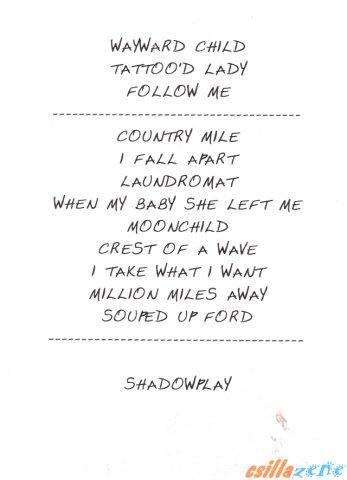 WAYWARD CHILD
TATTOO'D LADY
FOLLOW ME
COUNTRY MILE
I FALL APART
LAUNDROMAT
WHEN MY BABY SHE LEFT ME
MOONCHILD
CREST OF A WAVE
I TAKE WHAT I WANT
MILLION MILES AWAY
SOUPED UP FORD
SHADOWPLAY
csillazene